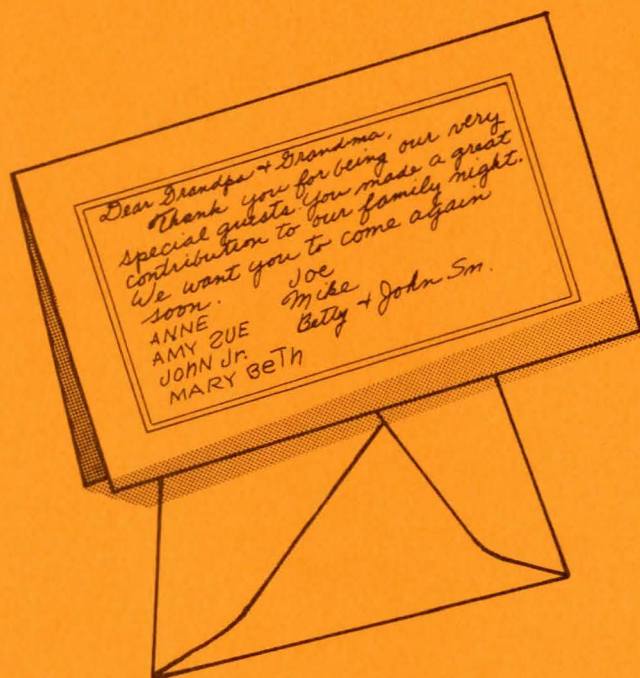 Dear Grandpa + Grandma,
Thank you for being our very
special guests. You made a great
contribution to our family night.
We want you to come again
soon.
ANNE
AMY ZUE
JOHN Jr.
MARY BeTh
Joe
Mike
Betty + John Sn.